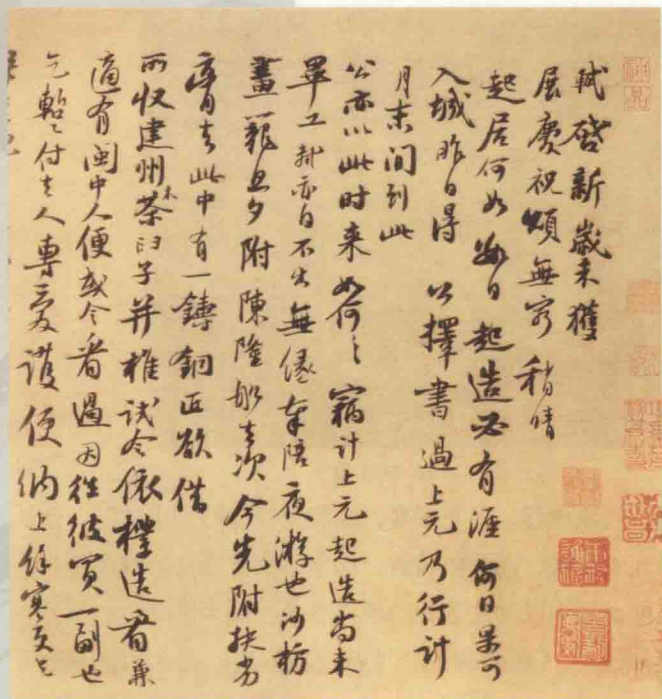 軾啓新歲未獲
展慶祝頌無窮稍晴
起居何如數日起造必有涯何日果可
入城昨日得公擇書過上元乃行計
月末間到此
公亦以此时来如何々竊計上元起造尚未
畢工軾亦自不出無緣奉陪夜游也沙枋
畫籠旦夕附陳隆船去次今先附扶劣
膏去此中有一鑄銅匠欲借
所収建州茶臼子并椎試令依樣造看兼
適有閩中人便或令看過因往彼買一副也
乞蹔付去人專愛護便納上餘寒更乞